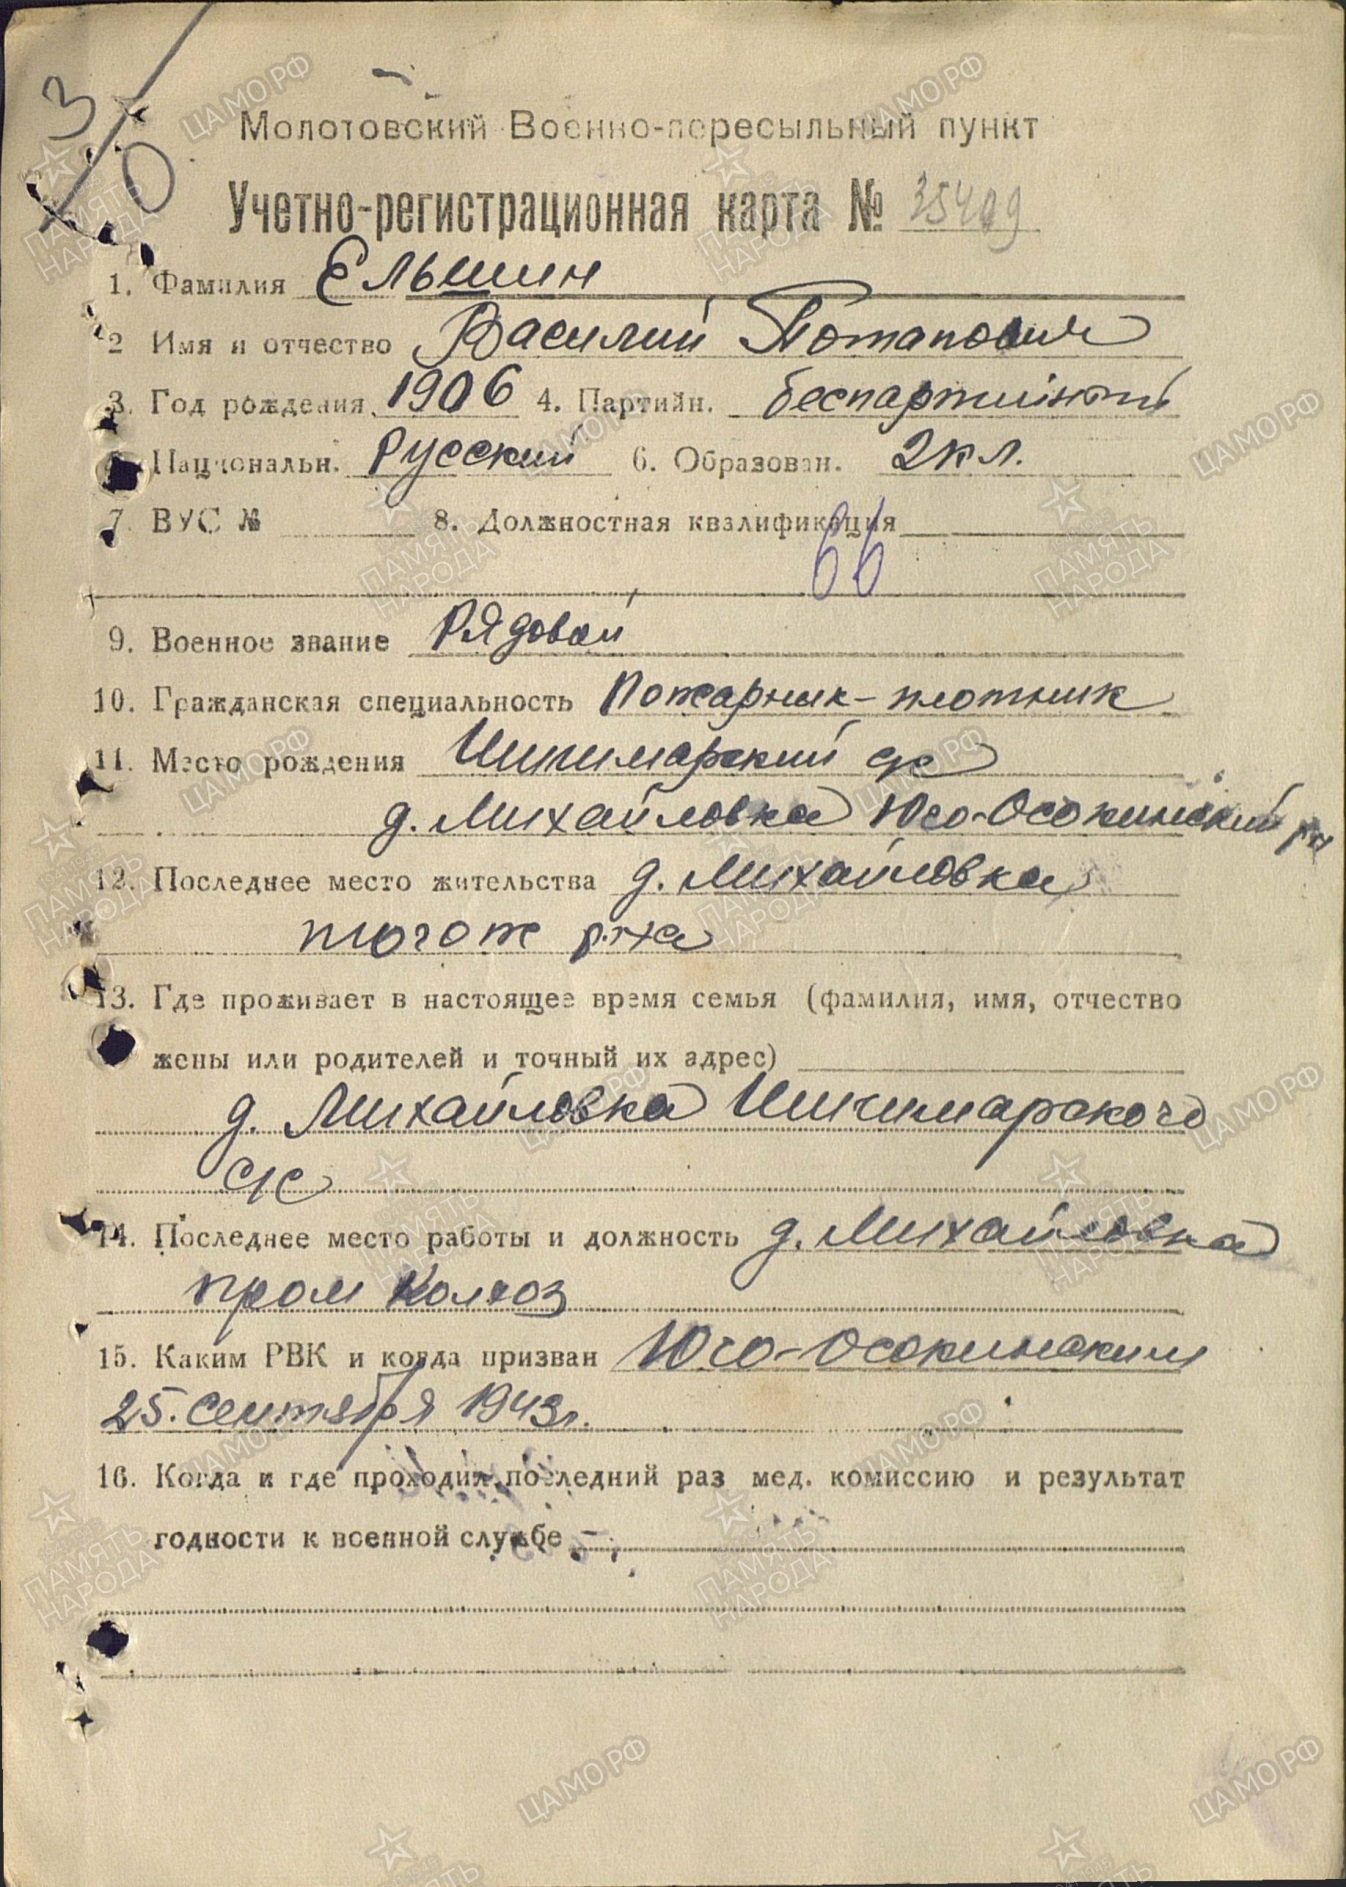 3/0
Молотовский Военно-пересыльный пункт
Учетно-регистрационная карта № 35409
1. Фамилия Ельшин
2 Имя и отчество Василий Потапович
3. Год рождения 1906 4. Партийн. беспартийный
Национальн. Русский 6. Образован. 2 кл.
7. ВУС № 8. Должностная квалификация
66
9. Военное звание Рядовой
10. Гражданская специальность Пожарник-плотник
11. Место рождения Шишмарский с/с
д. Михайловка Юго-Осокинский р-н
12. Последнее место жительства д. Михайловка
тогож р-на
13. Где проживает в настоящее время семья (фамилия, имя, отчество
жены или родителей и точный их адрес)
д. Михайловка Шишмарского
с/с
14. Последнее место работы и должность д. Михайловка
пром Колхоз
15. Каким РВК и когда призван Юго-Осокинским
25. сентября 1943 г.
16. Когда и где проходил последний раз мед. комиссию и результат
годности к военной службе –